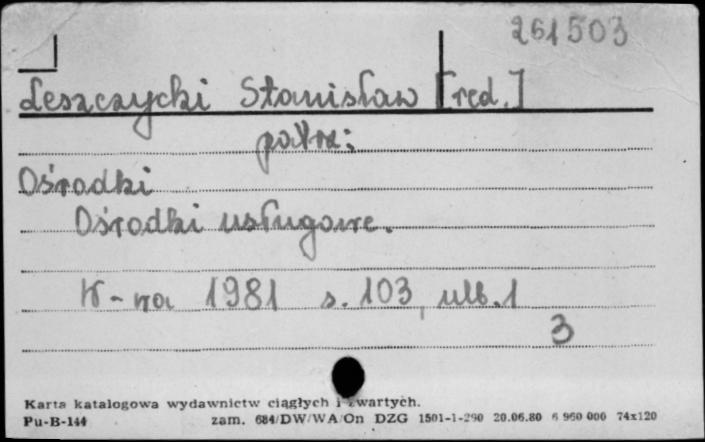 261503
Leszczycki Stanisław [red.]
patrz:
Ośrodki
Ośrodki usługowe.
W-wa 1981 s. 103, ulb. 1
3
Karta katalogowa wydawnictw ciągłych i zwartych.
Pu-B-144 zam. 684/DW/WA/On DZG 1501-1-290 20.06.80 6 960 000 74x120